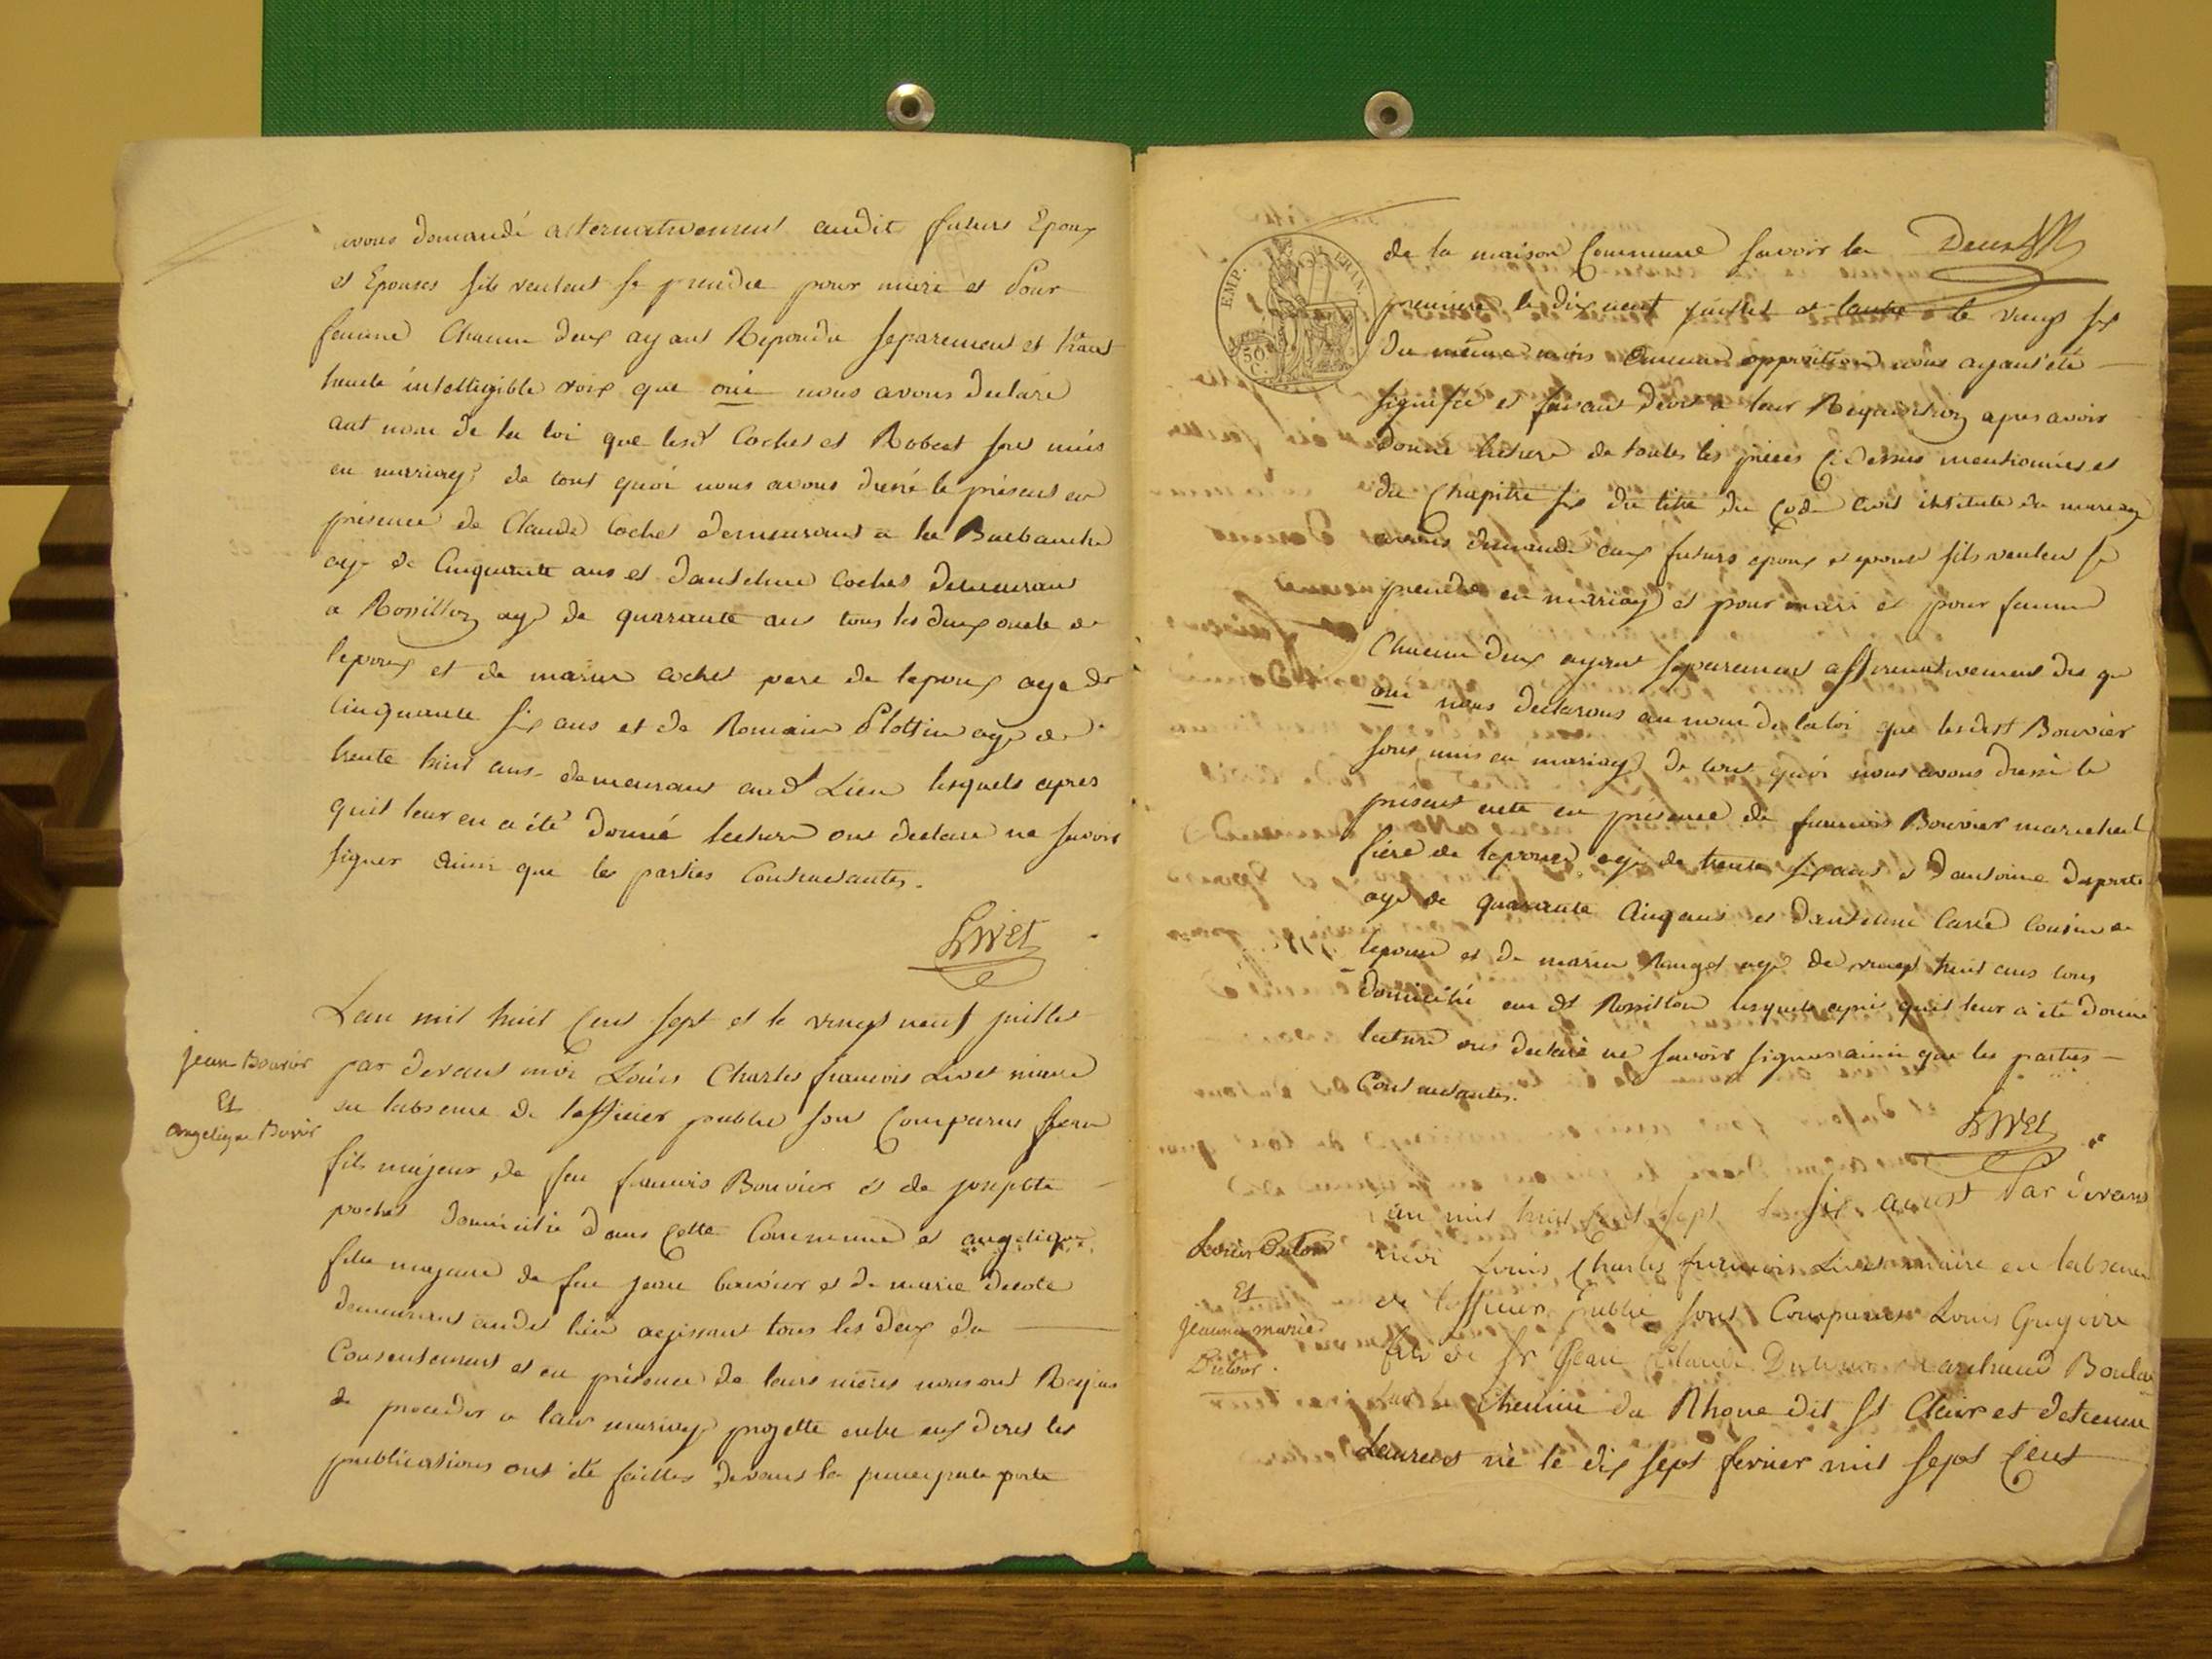 avons demandé alternativement audit futurs Epoux
et Epouses sils veulent se prendre pour mari et Pour
femme Chacun deux ayant Repondu separement et haut
haute intelligible voix que oui nous avons declaré
aut nom de la loi que lesd Cochet et Robert sont unis
en mariage de tout quoi nous avons dressé le présent en
présence de Claude Cochet demeurant a la Burbanche
agé de Cinquante ans et danthelme Cochet demeurant
a Rossillon agé de quarante ans tous les deux oncle de
lepoux et de marin cochet pere de lepoux age de
Cinquante six ans et de Romain Plottin agé de
trente huit ans demeurant aud Lieu lesquels apres
quil leur en a été donné lecture ont declaré ne savoir
signer ainsi que les parties Contractantes.
Livet
Lan mil huit Cent sept et le vingt neuf juillet
jean Bouvier
Et
angelique Buvir
par devant moi Louis Charles francois Livet maire
en labsence de lofficier public sont Comparus jean
fils majeur de feu francois Bouvier et de josephte
pochet domicilié dans Cette Commune et angelique
fille majeure de feu jean bouvier et de marie
demeurant audit lieu agissant tous les deux du
Consentement et en présence de leurs mères nous ont Requis
de proceder a leur mariage projetté entre eux dont les
publications ont été faittes devant la principale porte
EMP. FRAN.
50 C.
de la maison Commune savoir la
premiere le dix neuf juillet et lautre le vingt six
du même mois aucune opposition nous ayant été
signifié et faisant droit a leur Requisition apres avoir
donné lecture de toutes les pièces Cidessus mentionnées et
du Chapitre six du titre du Code Civil intitulé du mariage
avons demandé aux futurs epoux et epouse sils veulent se
prendre en mariage et pour mari et pour femme
Chacun deux ayant separement affirmativement dit que
oui nous declarons au nom de la loi que lesdits Bouvier
sont unis en mariage de tout quoi nous avons dressé le
présent acte en présence de francois Bouvier marechal
frère de lepouse agé de trente six ans et dantoine
agé de quarante Cinq ans et danthelme Carré Cousin de
lepouse et de marin agé de vingt huit ans tous
domicilié au dt Rossillon lesquels apré quil leur a été donné
lecture ont declaré ne savoir signer ainsi que les parties
Contractantes.
Livet
Lan mil huit Cent sept le six aoust Par devant
Louis Dutour
Et
jeanne marie
Dutour.
moi Louis Charles francois Livet maire en labsence
de lofficier public sont Comparus Louis Gregoire
fils de Sr Jean Claude Dutour marchand
sur le Chemin du Rhone dit St Clair et
Laurent né le dix sept fevrier mil sept Cent